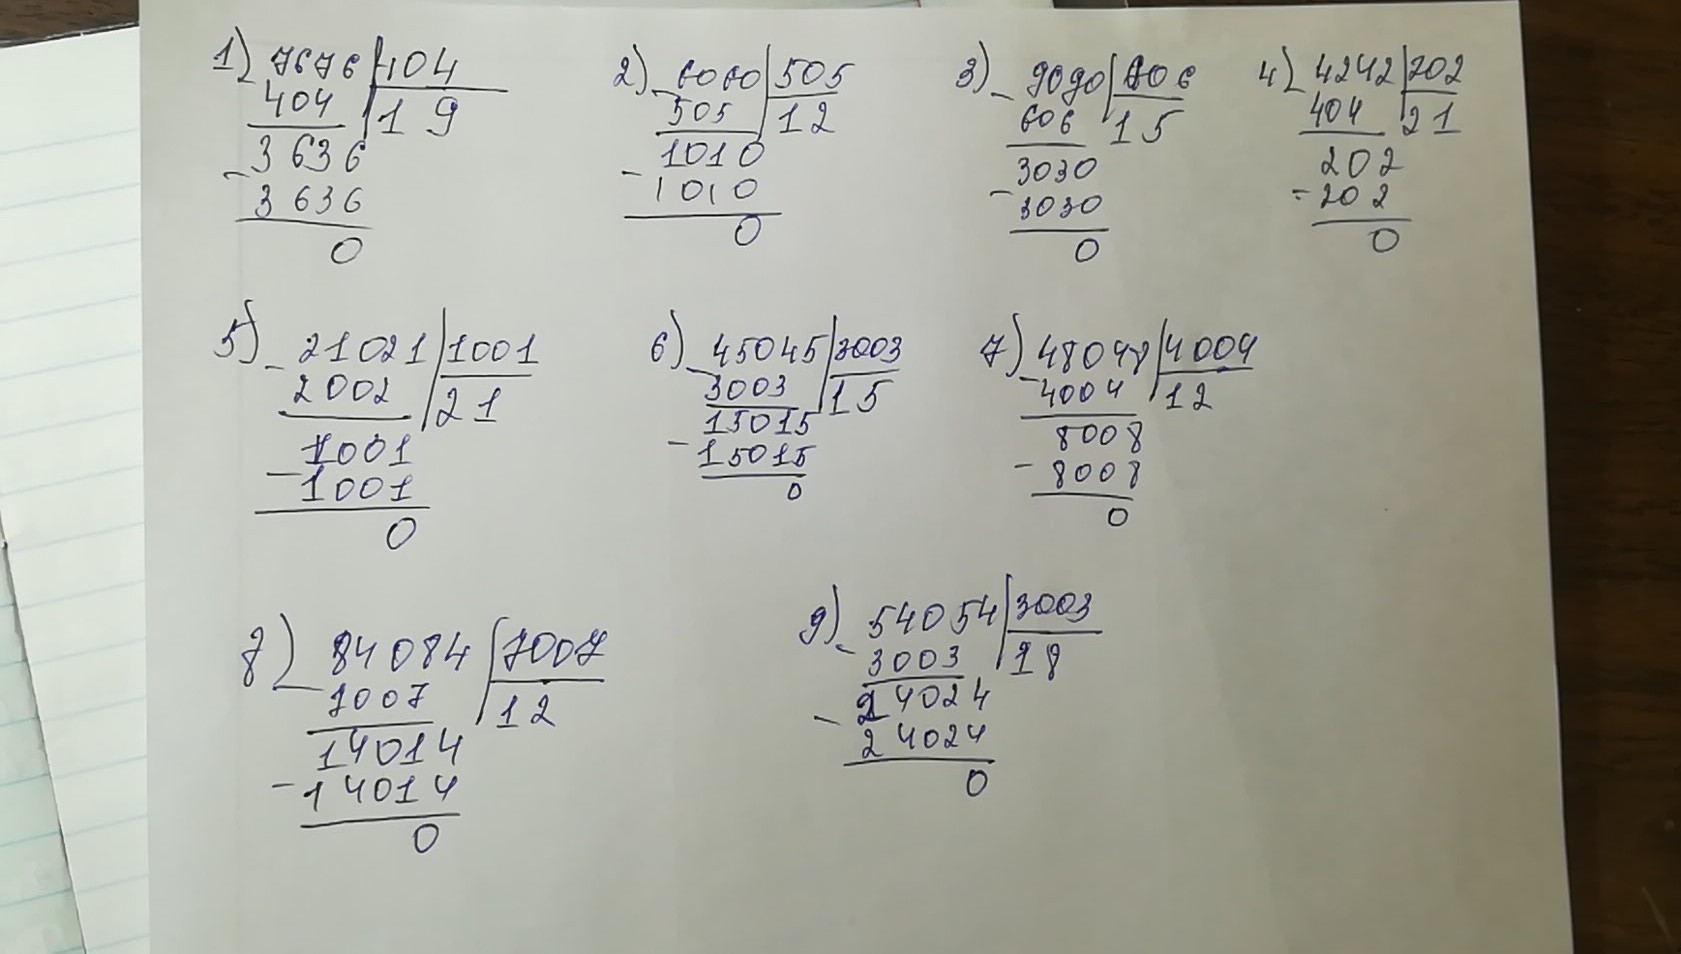 1) 7676 404
404 19
3636
- 3636
0
2) - 6060 505
505 12
1010
- 1010
0
3) - 9090 606
606 15
3030
- 3030
0
4) 4242 202
404 21
202
- 202
0
5) - 21021 1001
2002 21
1001
- 1001
0
6) - 45045 3003
3003 15
15015
- 15015
0
7) - 48048 4004
4004 12
8008
- 8008
0
8) - 84084 7007
7007 12
14014
- 14014
0
9) - 54054 3003
3003 18
24024
- 24024
0